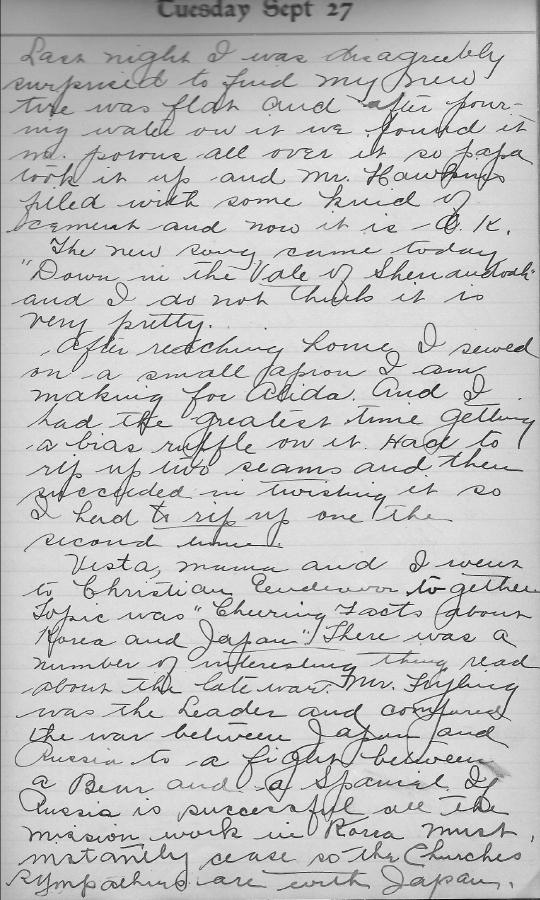 Tuesday Sept 27
Last night I was disagreebly
surprised to find my new
tire was flat and after pour-
ing water on it we found it
was porous all over it so papa
took it up and Mr. Hawkins
filled with some kind of
cement and now it is O. K.
The new song came today
"Down in the Vale of Shenandoah"
and I do not think it is
very pretty.
After reaching home I sewed
on a small apron I am
making for Alida. And I
had the greatest time getting
a bias ruffle on it. Had to
rip up two seams and then
succeeded in twisting it so
I had to rip up one the
second time.
Vista, mama and I went
to Christian Endeavor together
Topic was "Cheering Facts about
Korea and Japan". There was a
number of interesting thing read
about the late war. Mr.
was the Leader and compared
the war between Japan and
Russia to a fight between
a Bear and a Spaniel. If
Russia is successful all the
mission work in Korea must
instantly cease so the Churches
sympathies are with Japan.